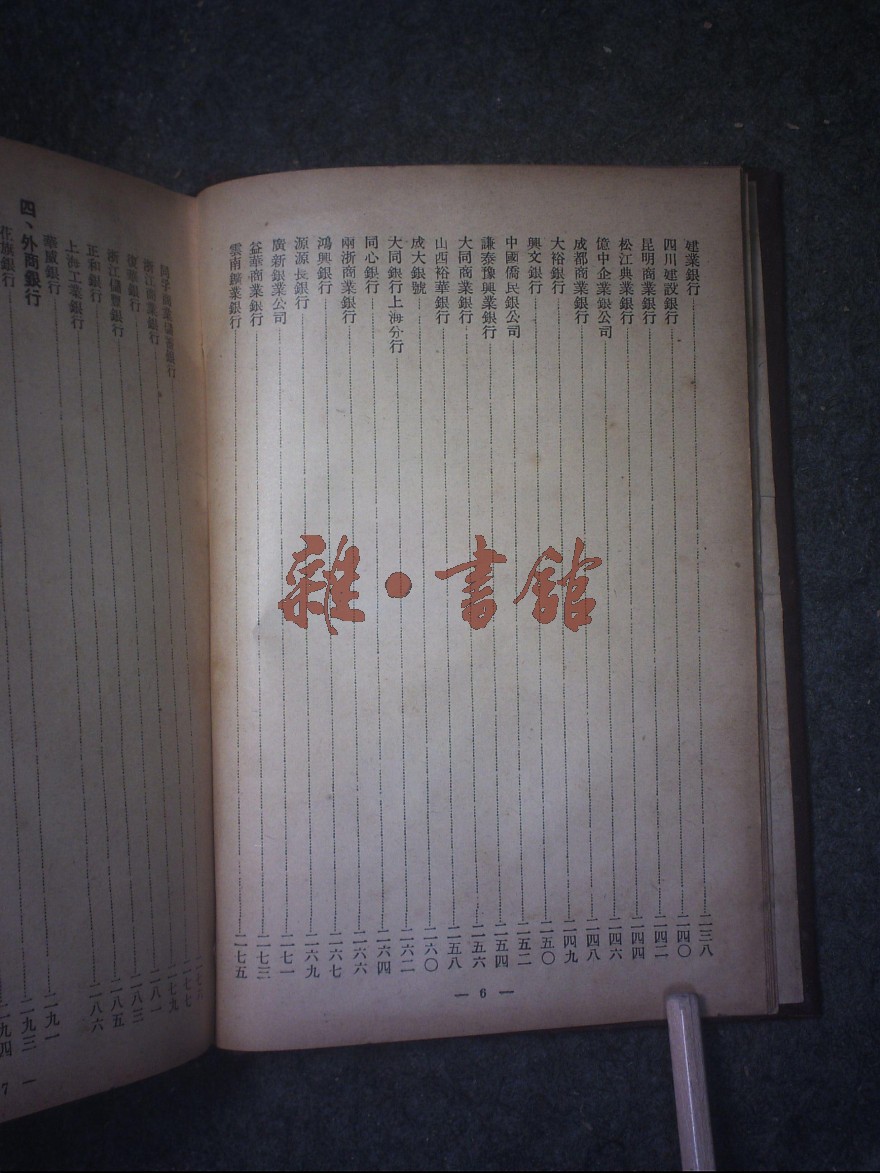 建業銀行 二三八
四川建設銀行 二四〇
昆明商業銀行 二四二
松江典業銀行 二四四
億中企業銀公司 二四六
成都商業銀行 二四八
大裕銀行 二四九
興文銀行 二五〇
中國僑民銀公司 二五二
謙泰豫興業銀行 二五四
大同商業銀行 二五六
山西裕華銀行 二五八
成大銀號 二六〇
大同銀行上海分行 二六二
同心銀行 二六四
兩浙商業銀行 二六六
鴻興銀行 二六七
源源長銀行 二六九
廣新銀業公司 二七一
益華商業銀行 二七三
雲南鑛業銀行 二七五
— 6 —
雜·書館
浙江商業銀行
浙江儲豐銀行
正和銀行
上海工業銀行
華威銀行
四、外商銀行
花旗銀行
二八一
二八三
二八五
二八六
二九一
二九三
二九四
7 —